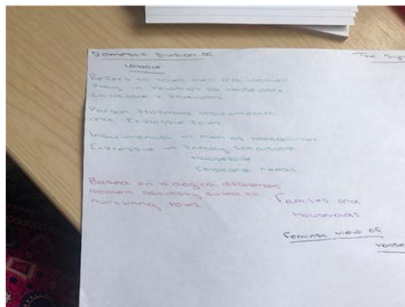 Domestic Division of
Labour
Refers to roles men and women
play in relation to housework,
childcare + paid work
Parson
instrumental
and Expressive roles
Instrumental = men as breadwinner
Expressive = Primary Socialisation
Housework
Emotional needs
Based on biological differences
women naturally suited to
nurturing roles
Families and
Households
Feminist view of